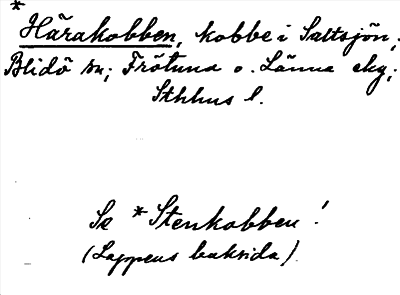 *
Härakobben, kobbe i Saltsjön,
Blidö sn; Frötuna o. Länna skg;
Sthlms l.
Se *Stenkobben!
(Lappens baksida).